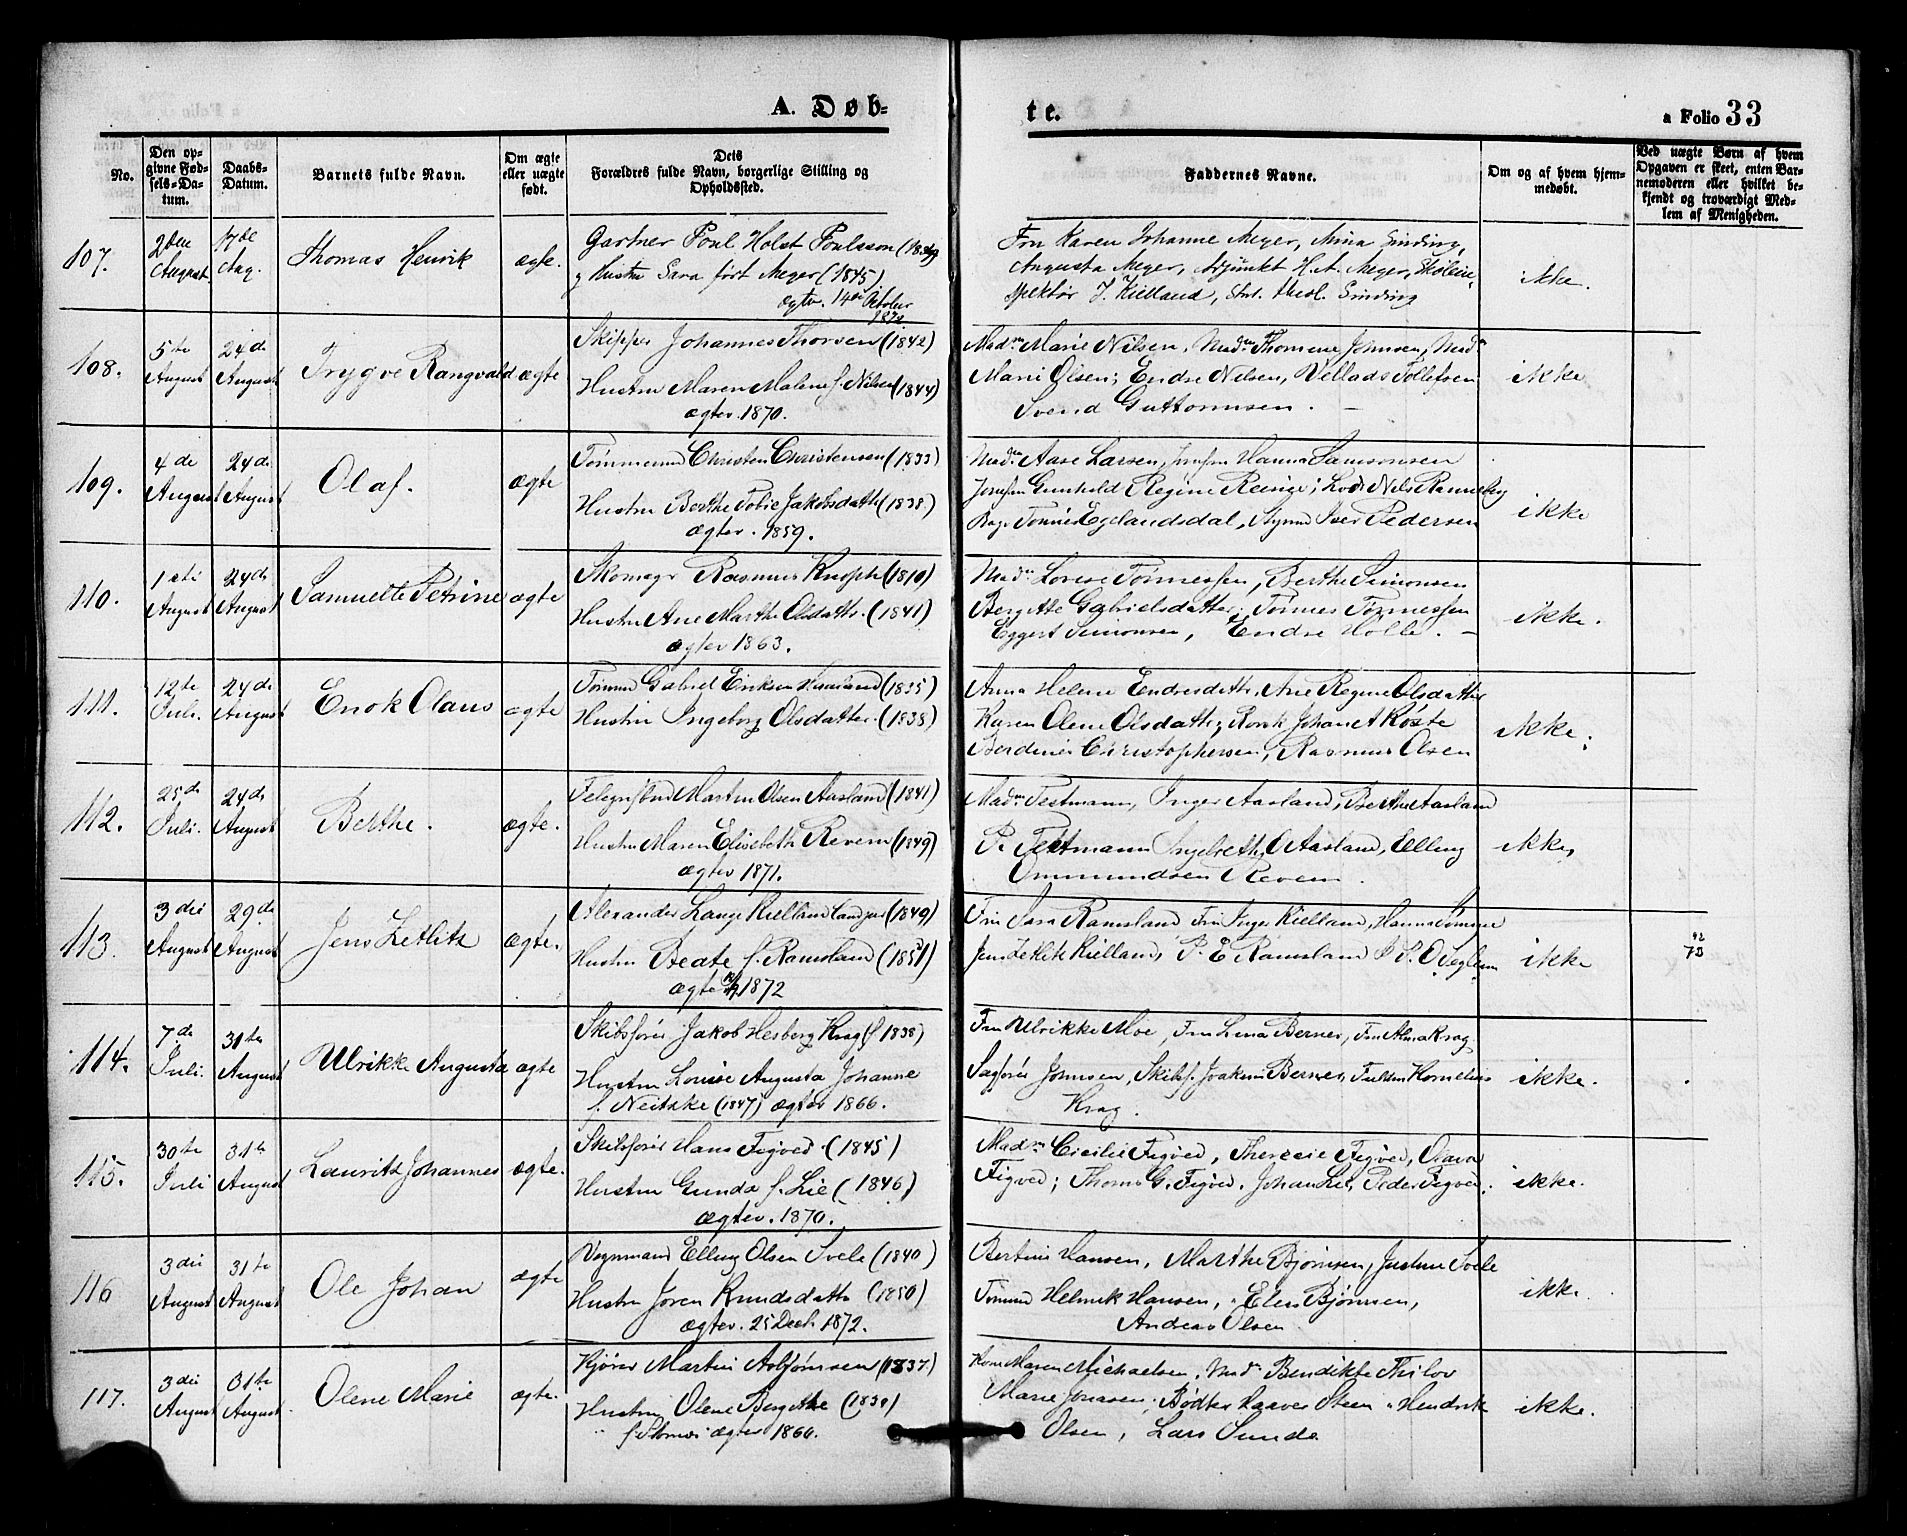 A. Døb-
te.
a Folio 33
No.
Den op-
givne Fød-
sels-Da-
tum.
Daabs-
Datum.
Barnets fulde Navn.
Om ægte
eller uægte
født.
Dets
Forældres fulde Navn, borgerlige Stilling og
Opholdssted.
Faddernes Navne.
Om og af hvem hjem-
medøbt.
Ved uægte Børn af hvem
Opgaven er skeet, enten Bar-
nemoderen eller hvilket be-
kjendt og troværdigt Med-
lem af Menigheden.
107.
2den
August
17de
Aug.
Thomas Henrik
ægte.
Gartner Poul Holst Poulsson
Hustru Sara født Meyer (1845)
ægtev. 14de October
Fru Karen Johanne Meyer, Mina Sinding,
Augusta Meyer, Adjunkt H. A. Meyer, Skolein-
spektør J. Kielland, Stud. theol. Sinding
ikke.
108.
5te
August
24de
August
Trygve Rangvald
ægte
Skipper Johannes Thorsen (1842)
Hustru Maren Malene f. Nilsen (1844)
ægtev. 1870.
Madm Marie Nilsen, Madm Thomene Johnsen, Madm
Marie Olsen; Endre Nilsen, Vellads Tollefsen
Svend Guttormsen. –
ikke
109.
4de
August
24de
August
Olaf.
ægte
Tømmermd Christen Christensen (1833)
Hustru Berthe Tobie Jakobsdatter (1838.)
ægtev. 1859.
Madm. Aase Larsen, Jomfru Hanna Samsonsen
Jomfru Gunhold Regine Reinge; Lods Nils Ranneberg
Tønnes Egelandsdal, Styrmd Iver Pedersen
ikke
110.
1ste
August
24de
August
Samuelle Petrine
ægte
Skomagr Rasmus Knoph (1810)
Hustru Ane Marthe Olsdatter. (1841)
ægtev 1863.
Madm Lovise Tønnessen, Berthe Simonsen
Bergitte Gabrielsdatter; Tønnes Tønnessen
Eggert Simonsen, Endre Holle. –
ikke.
111.
12te
Juli.
24de
August
Enok Olaus
ægte
Tømmd Gabriel Eriksen Haaland (1835)
Hustru Ingeborg Olsdatter. (1838)
Anna Helene Endresdatter, Ane Regine Olsdatter
Karen Olene Olsdatter,
Berdines Christophersen, Rasmus Olsen
ikke.
112.
25de
Juli.
24de
August
Berthe.
ægte.
Martin Olsen Aasland (1841)
Hustru Maren Elisebeth Reveim (1849)
ægtev 1871.
Madm Testmann, Inger Aasland, Berthe Aasland
P. Testmann O Aasland, Elling
Ommundsen Reveim.
ikke,
113.
3die
August
29de
August
Jens Zetlitz
ægte.
Alexander Lange Kielland (1849)
Hustru Beate f. Ramsland (1851)
ægtev 1872
Fru Sara Ramsland, Fru Inger Kielland, Hanna
Jens Zetlitz Kielland, P. E. Ramsland
ikke
114.
7de
Juli.
31te
August
Ulrikke Augusta
ægte
Skibsfører Jakob Hesberg Krag (f. 1838)
Hustru Louise Augusta Johanne
f. Neitzke (1847) ægtev 1866.
Fru Ulrikke Moe, Fru Lina Berner, Frk Alma Krag.
Sagfører Johnsen, Skibsf. Joakim Berner, Kornelius
Krag.
ikke.
115.
30te
Juli
31te
August
Lauritz Johannes
ægte.
Skibsfører Hans Figved. (1845)
Hustru Gunda f. Lie (1846)
ægtev. 1870.
Madm Cicilie Figved, Theresie Figved, Olava
Figved; Thoms G. Figved, Johan Lie, Peder Figved.
ikke.
116
3die
August
31te
August
Ole Johan
ægte
Vognmand Elling Olsen Svele (1840)
Hustru Joren Knudsdatter (1850)
ægtev. 25 Decb. 1872.
Bertine Hansen, Marthe Bjørnsen, Justine Svele
Tømmd Helmik Hansen, Elias Bjørnsen,
Andreas Olsen
ikke.
117.
3die
August
31te
August
Olene Marie
ægte.
Kjører Martin Asbjørnsen (1837.)
Hustru Olene Bergithe
ægtev 1860.
Kone Maren Michaelsen, Madm Bendikte Thilov
Marie Jonassen; Bødker Haaver Steen, Hendrik
Olsen, Lars Sunde
ikke.